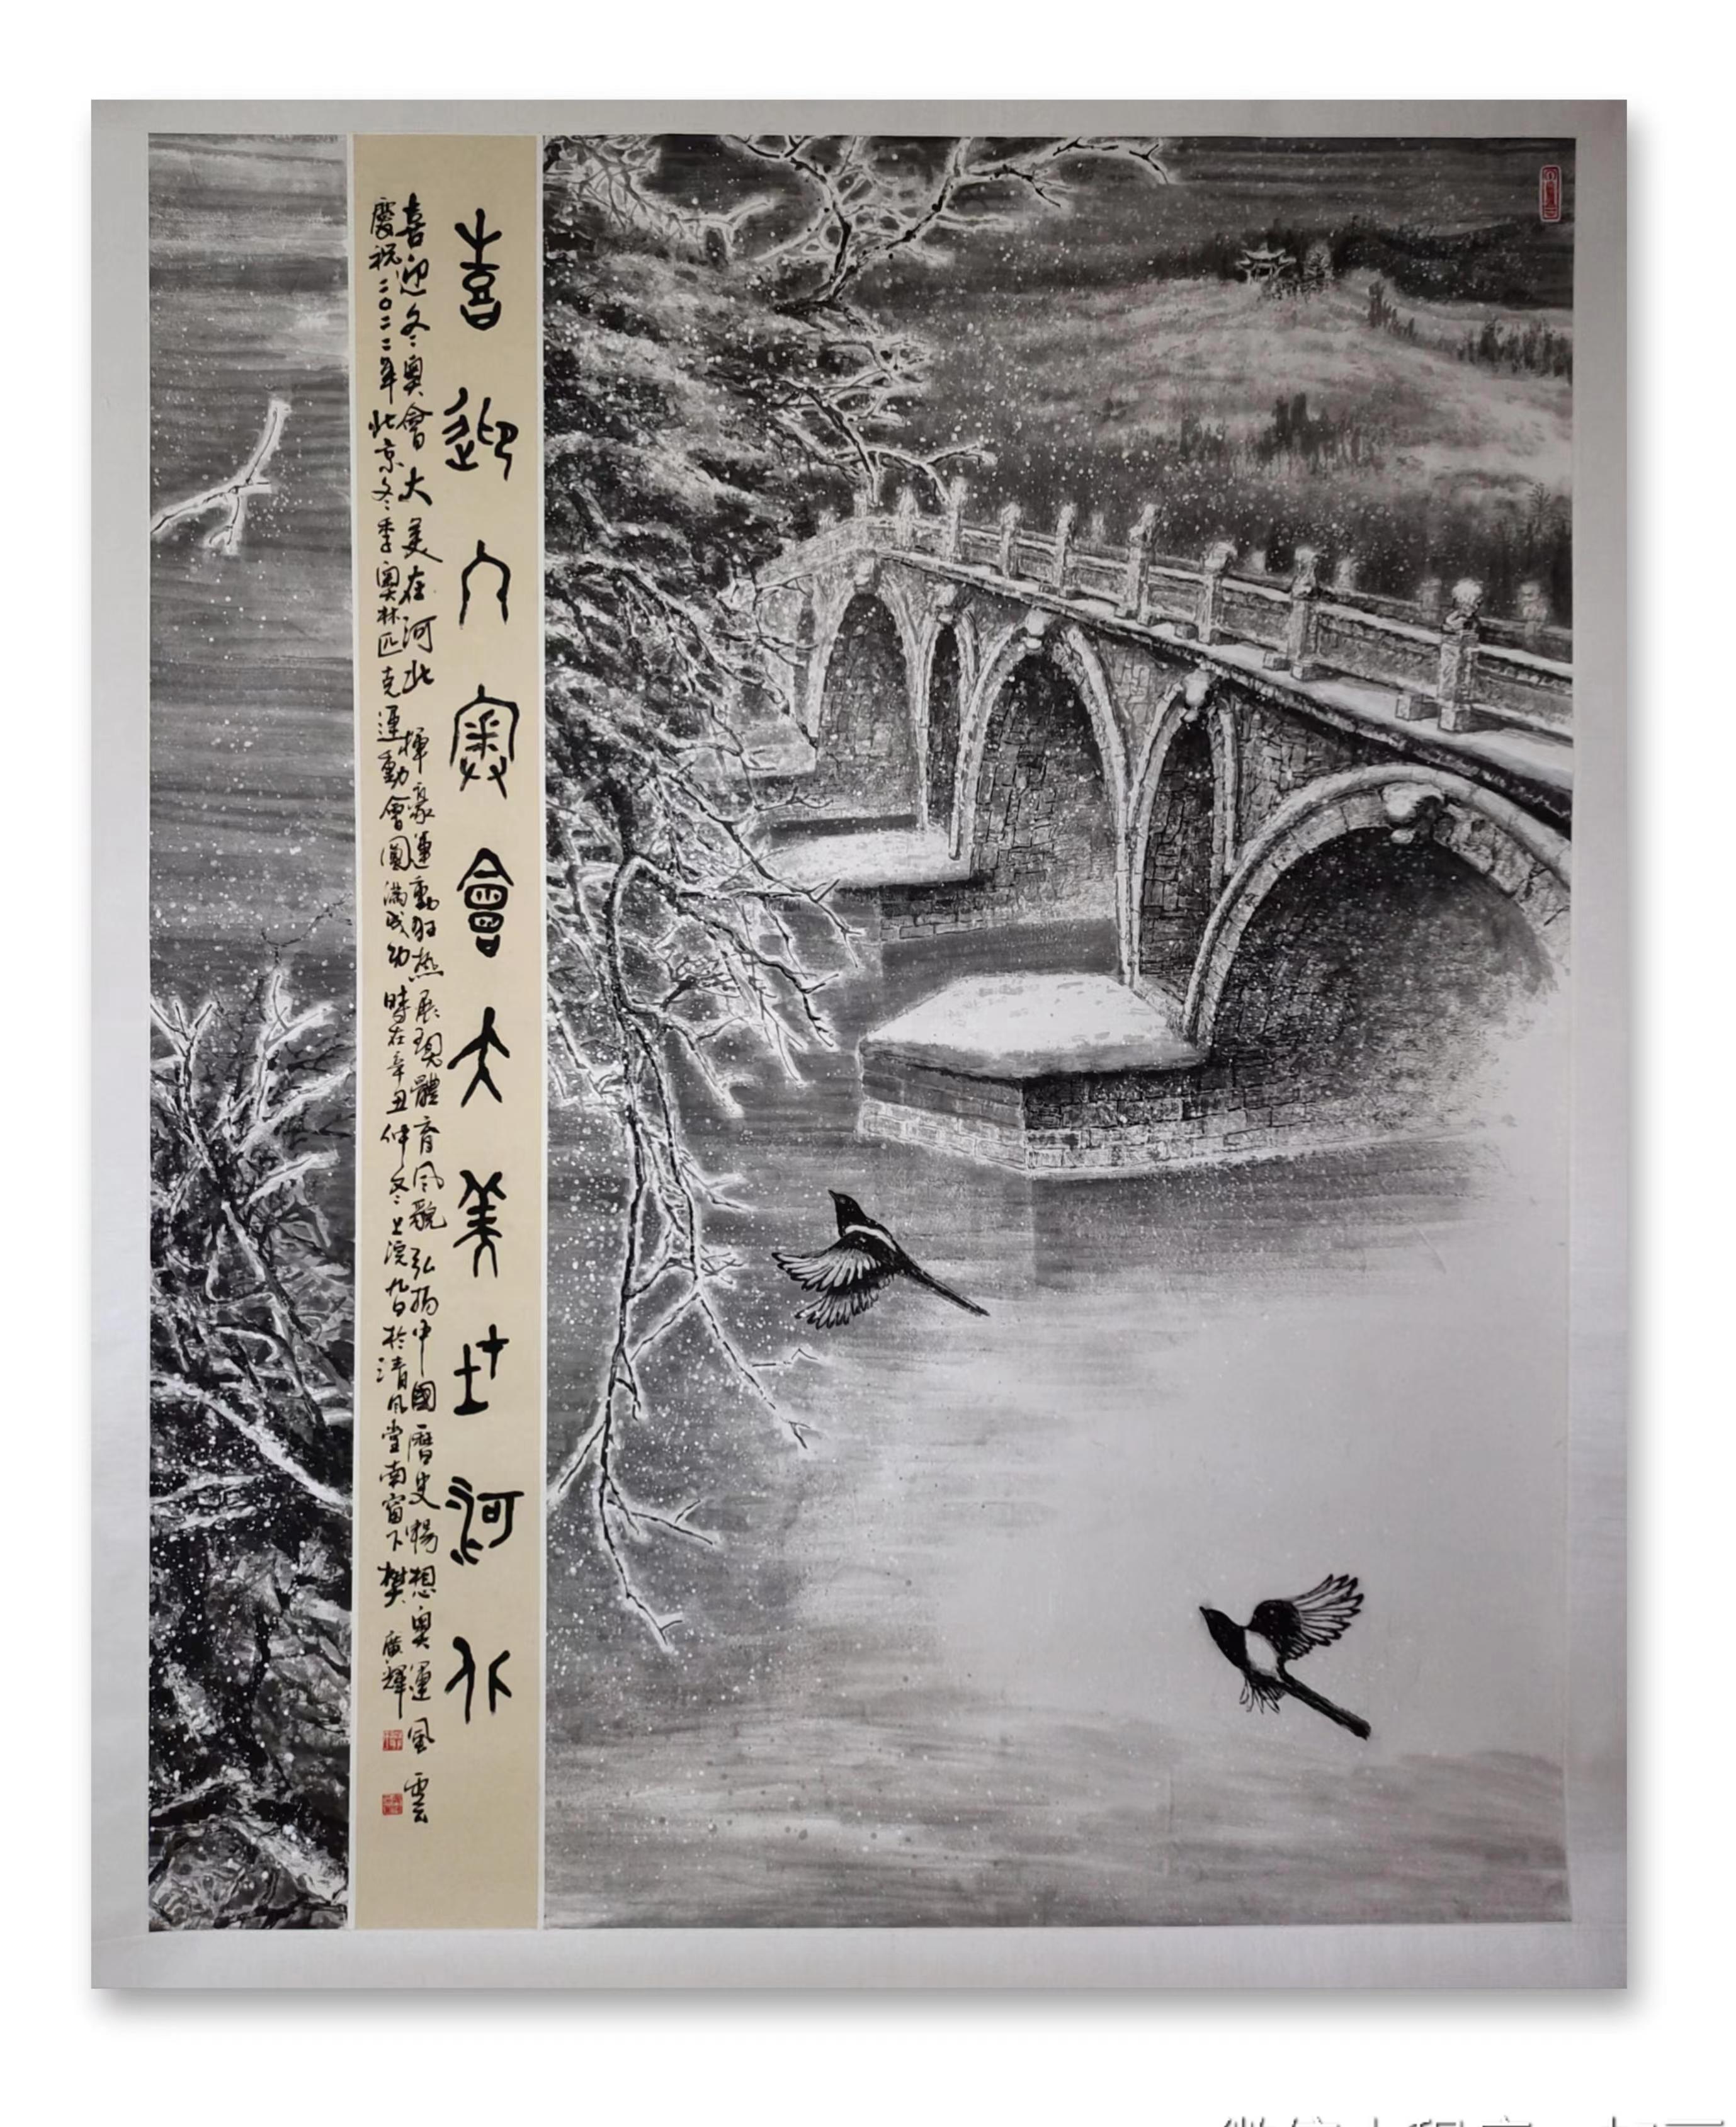 喜迎冬奧會大美在河北
喜迎冬奧會大美在河北 揮豪運動狂热展現體育风貌弘揚中國曆史暢想奥運風雲
慶祝二〇二二年北京冬季奧林匹克運動會圓满成功時在辛丑仲冬上浣九日於清风堂南窗下樊廣輝